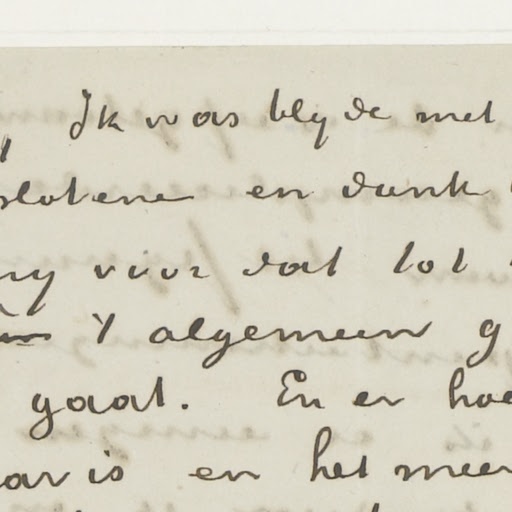 Ik was blyde met
slotene en dank
my voor dat tot
't algemeen g
gaat. En er hoe
aar is en het meer